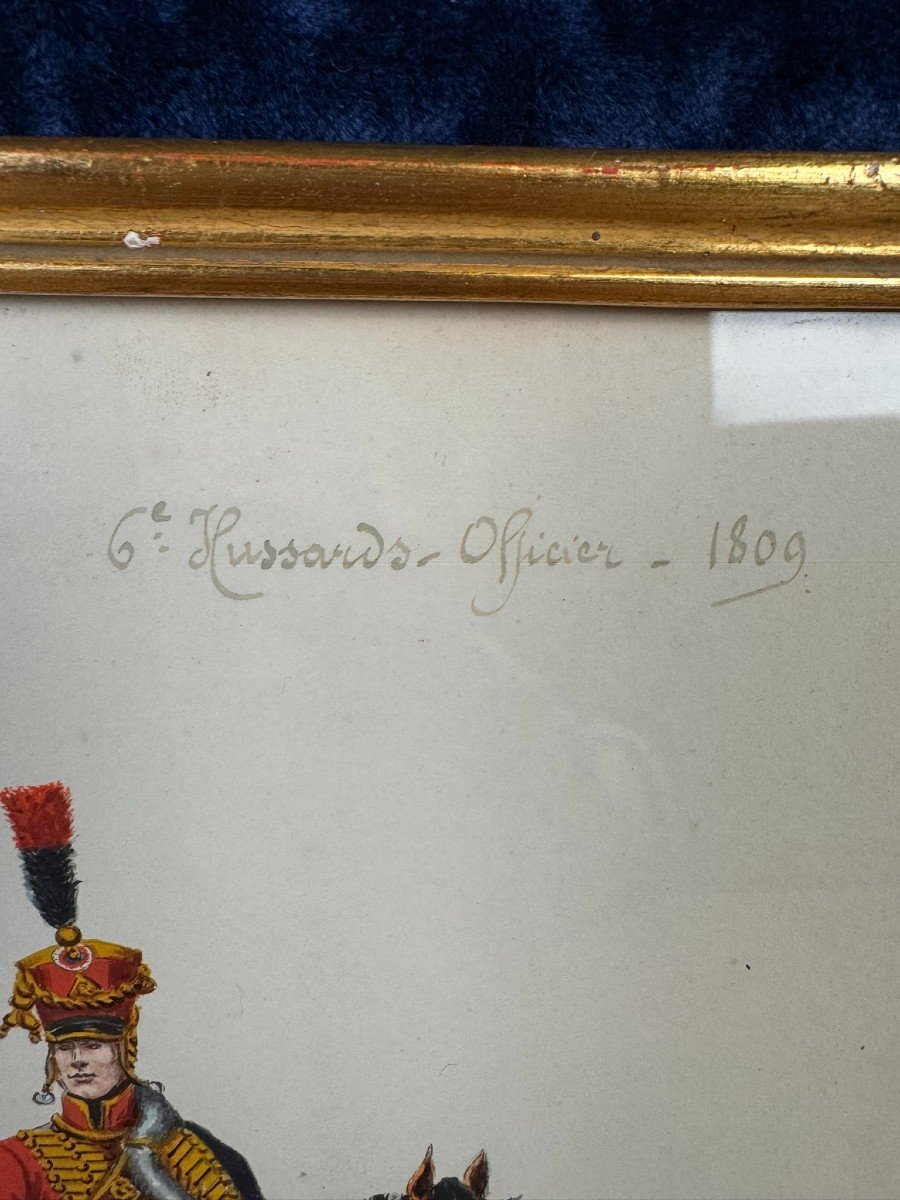 6e Hussards - Officier - 1809